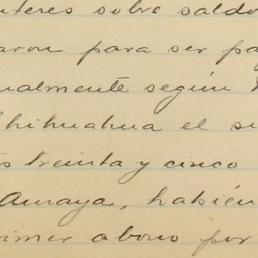 nteres sobre saldo
aron para ser pa
ualmente según
Chihuahua el su
s treinta y cinco
Amaya, habién
rimer abono por